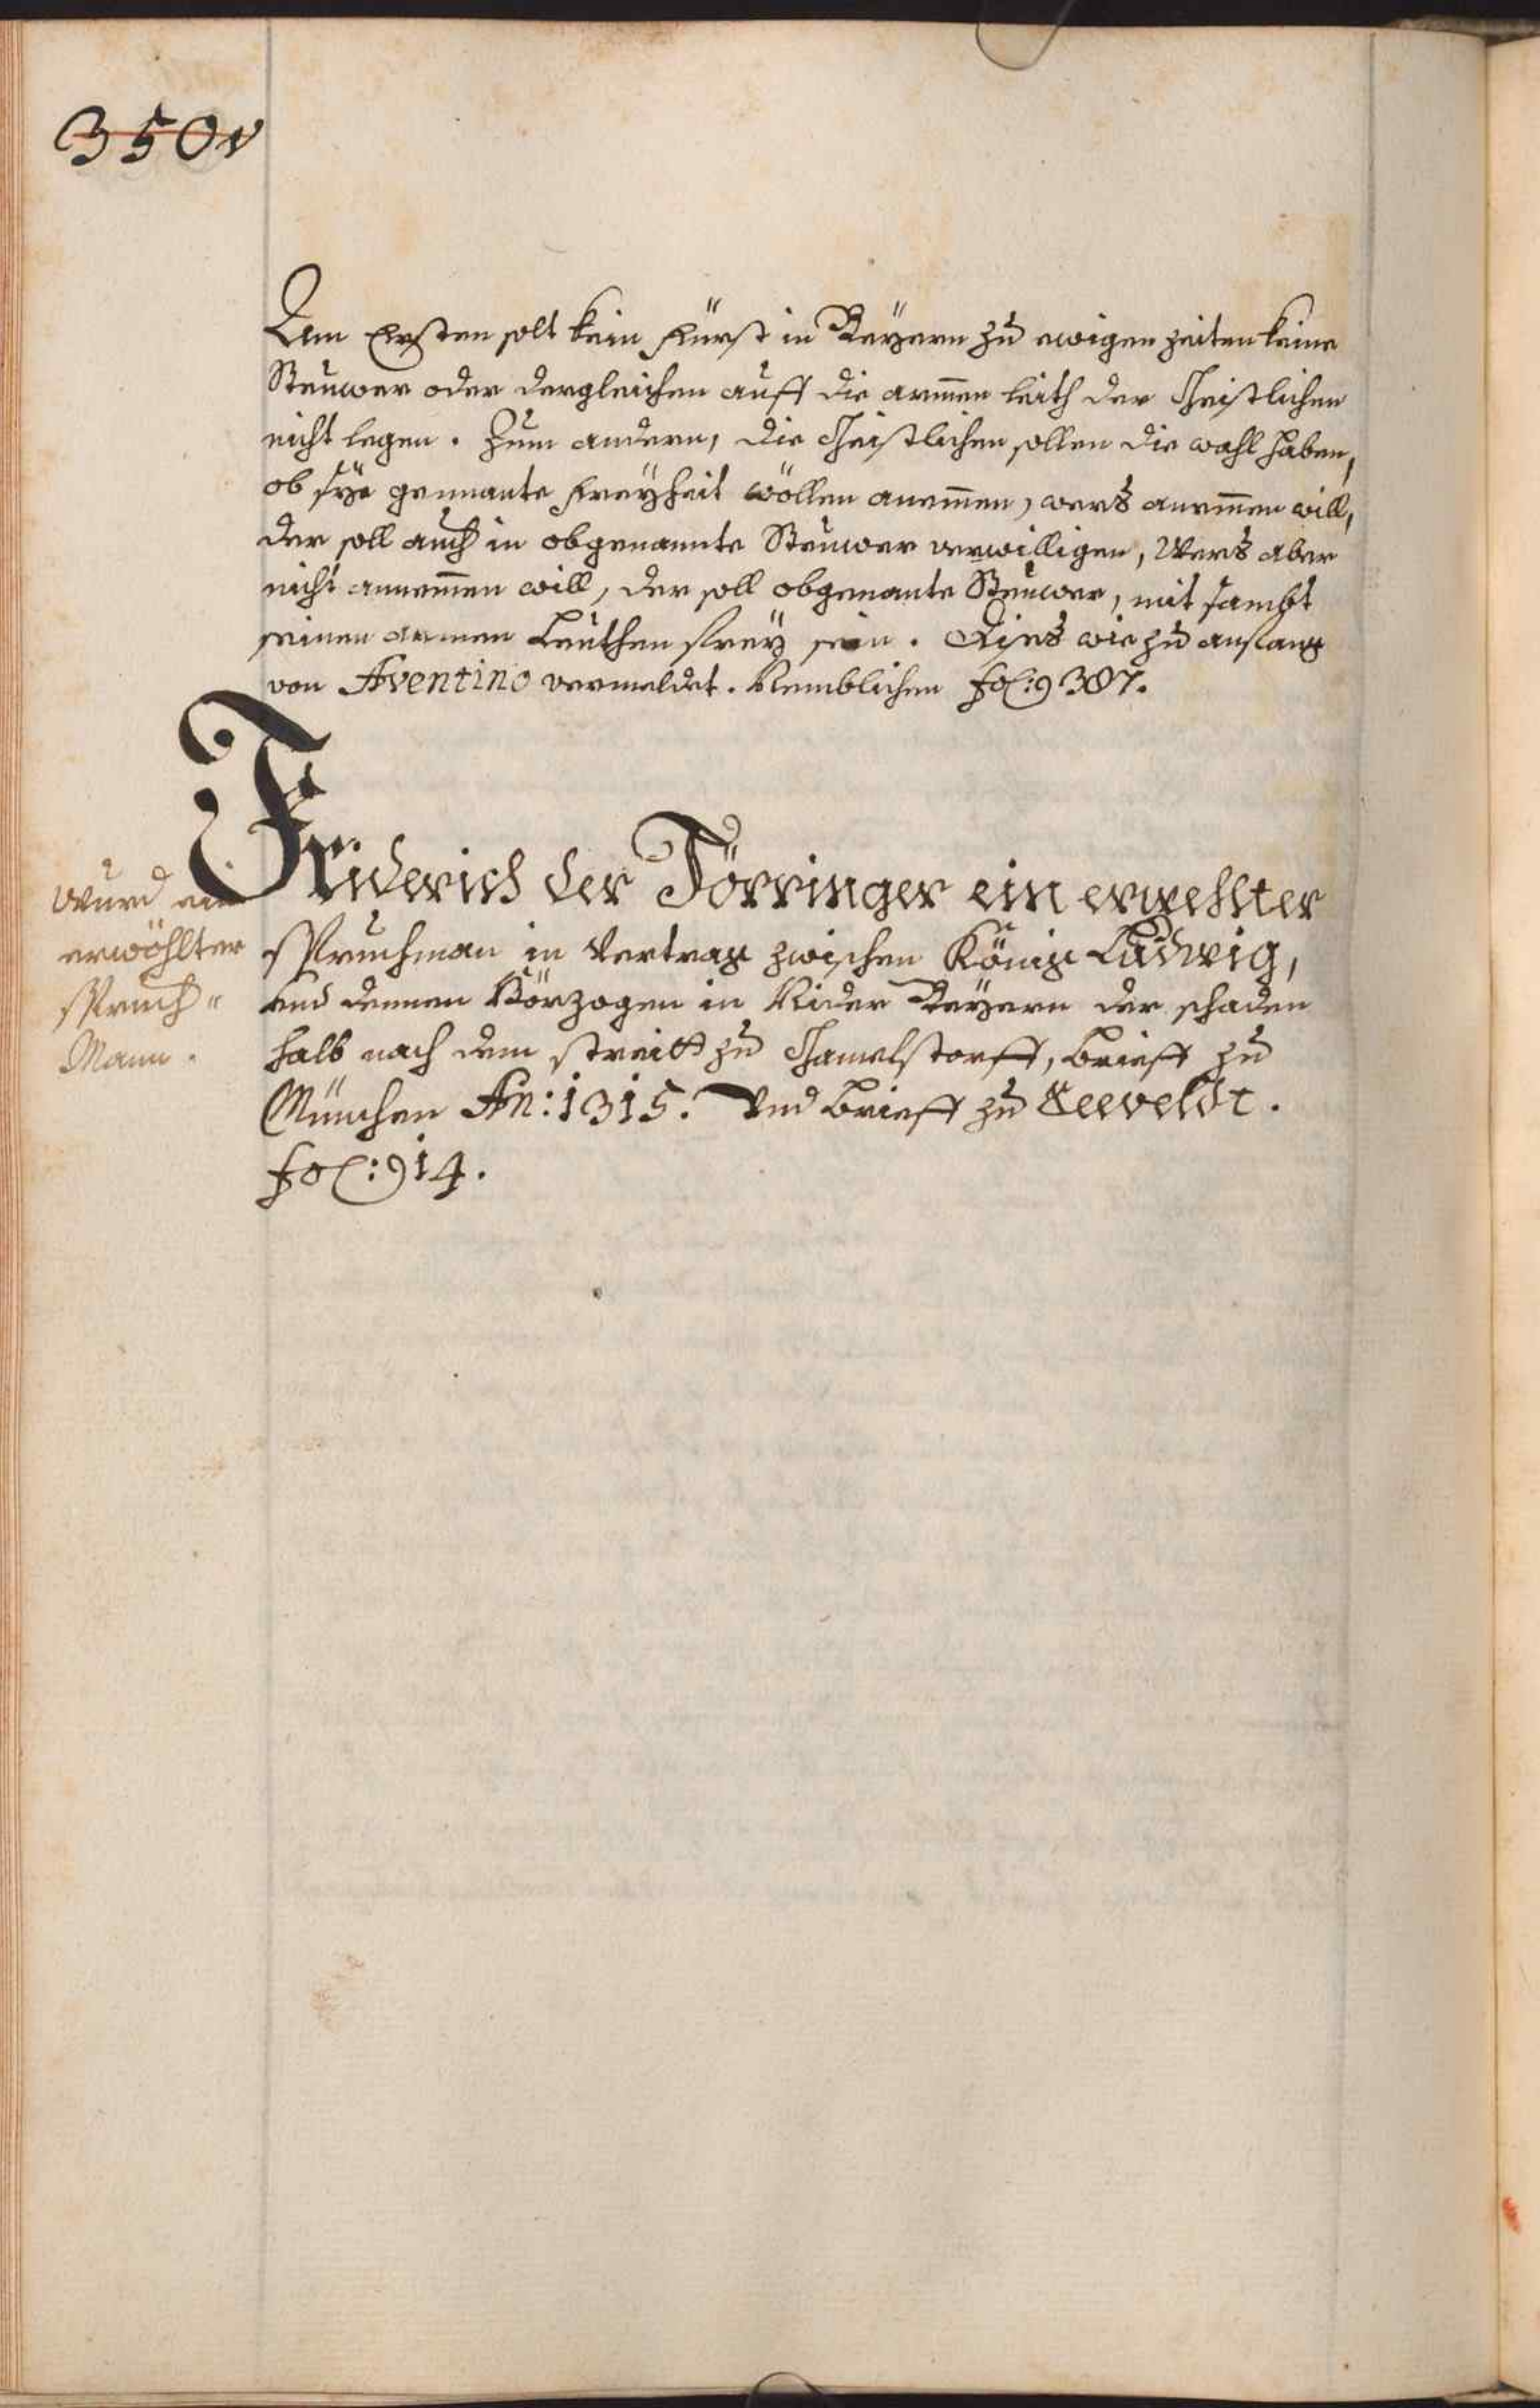 350v
Zum Ersten solt kein Fürst in Bayern zu ewigen zeiten keine
Steuwer oder dergleichen auff die armen leith der Geistlichen
nicht legen. Zum andern, die Geistlichen sollen die wahl haben,
ob sÿe genante Freÿheit wöllen anemen, wers anemen will,
der soll auch in obgenannte Steuwer verwilligen, Wers aber
nicht annemen will, der soll obgenante Steuwer, mit sambt
seinen armen Leuthen freÿ sein. wie zu anfang
von Aventino vermeldet. Nemblichen fol: 387.
Friderich der Törringer ein erwehlter
Spruchman in Vertrag zwischen König Ludwig,
und dennen Hörzogen in Nider Bayern der schaden
halb nach dem streitt zu Gamelstorff, brieff zu
München An: 1315. Und brieff zu Seeveldt.
fol: 914.
Wurd ein
erwöhlter
Spruch"
Mann.